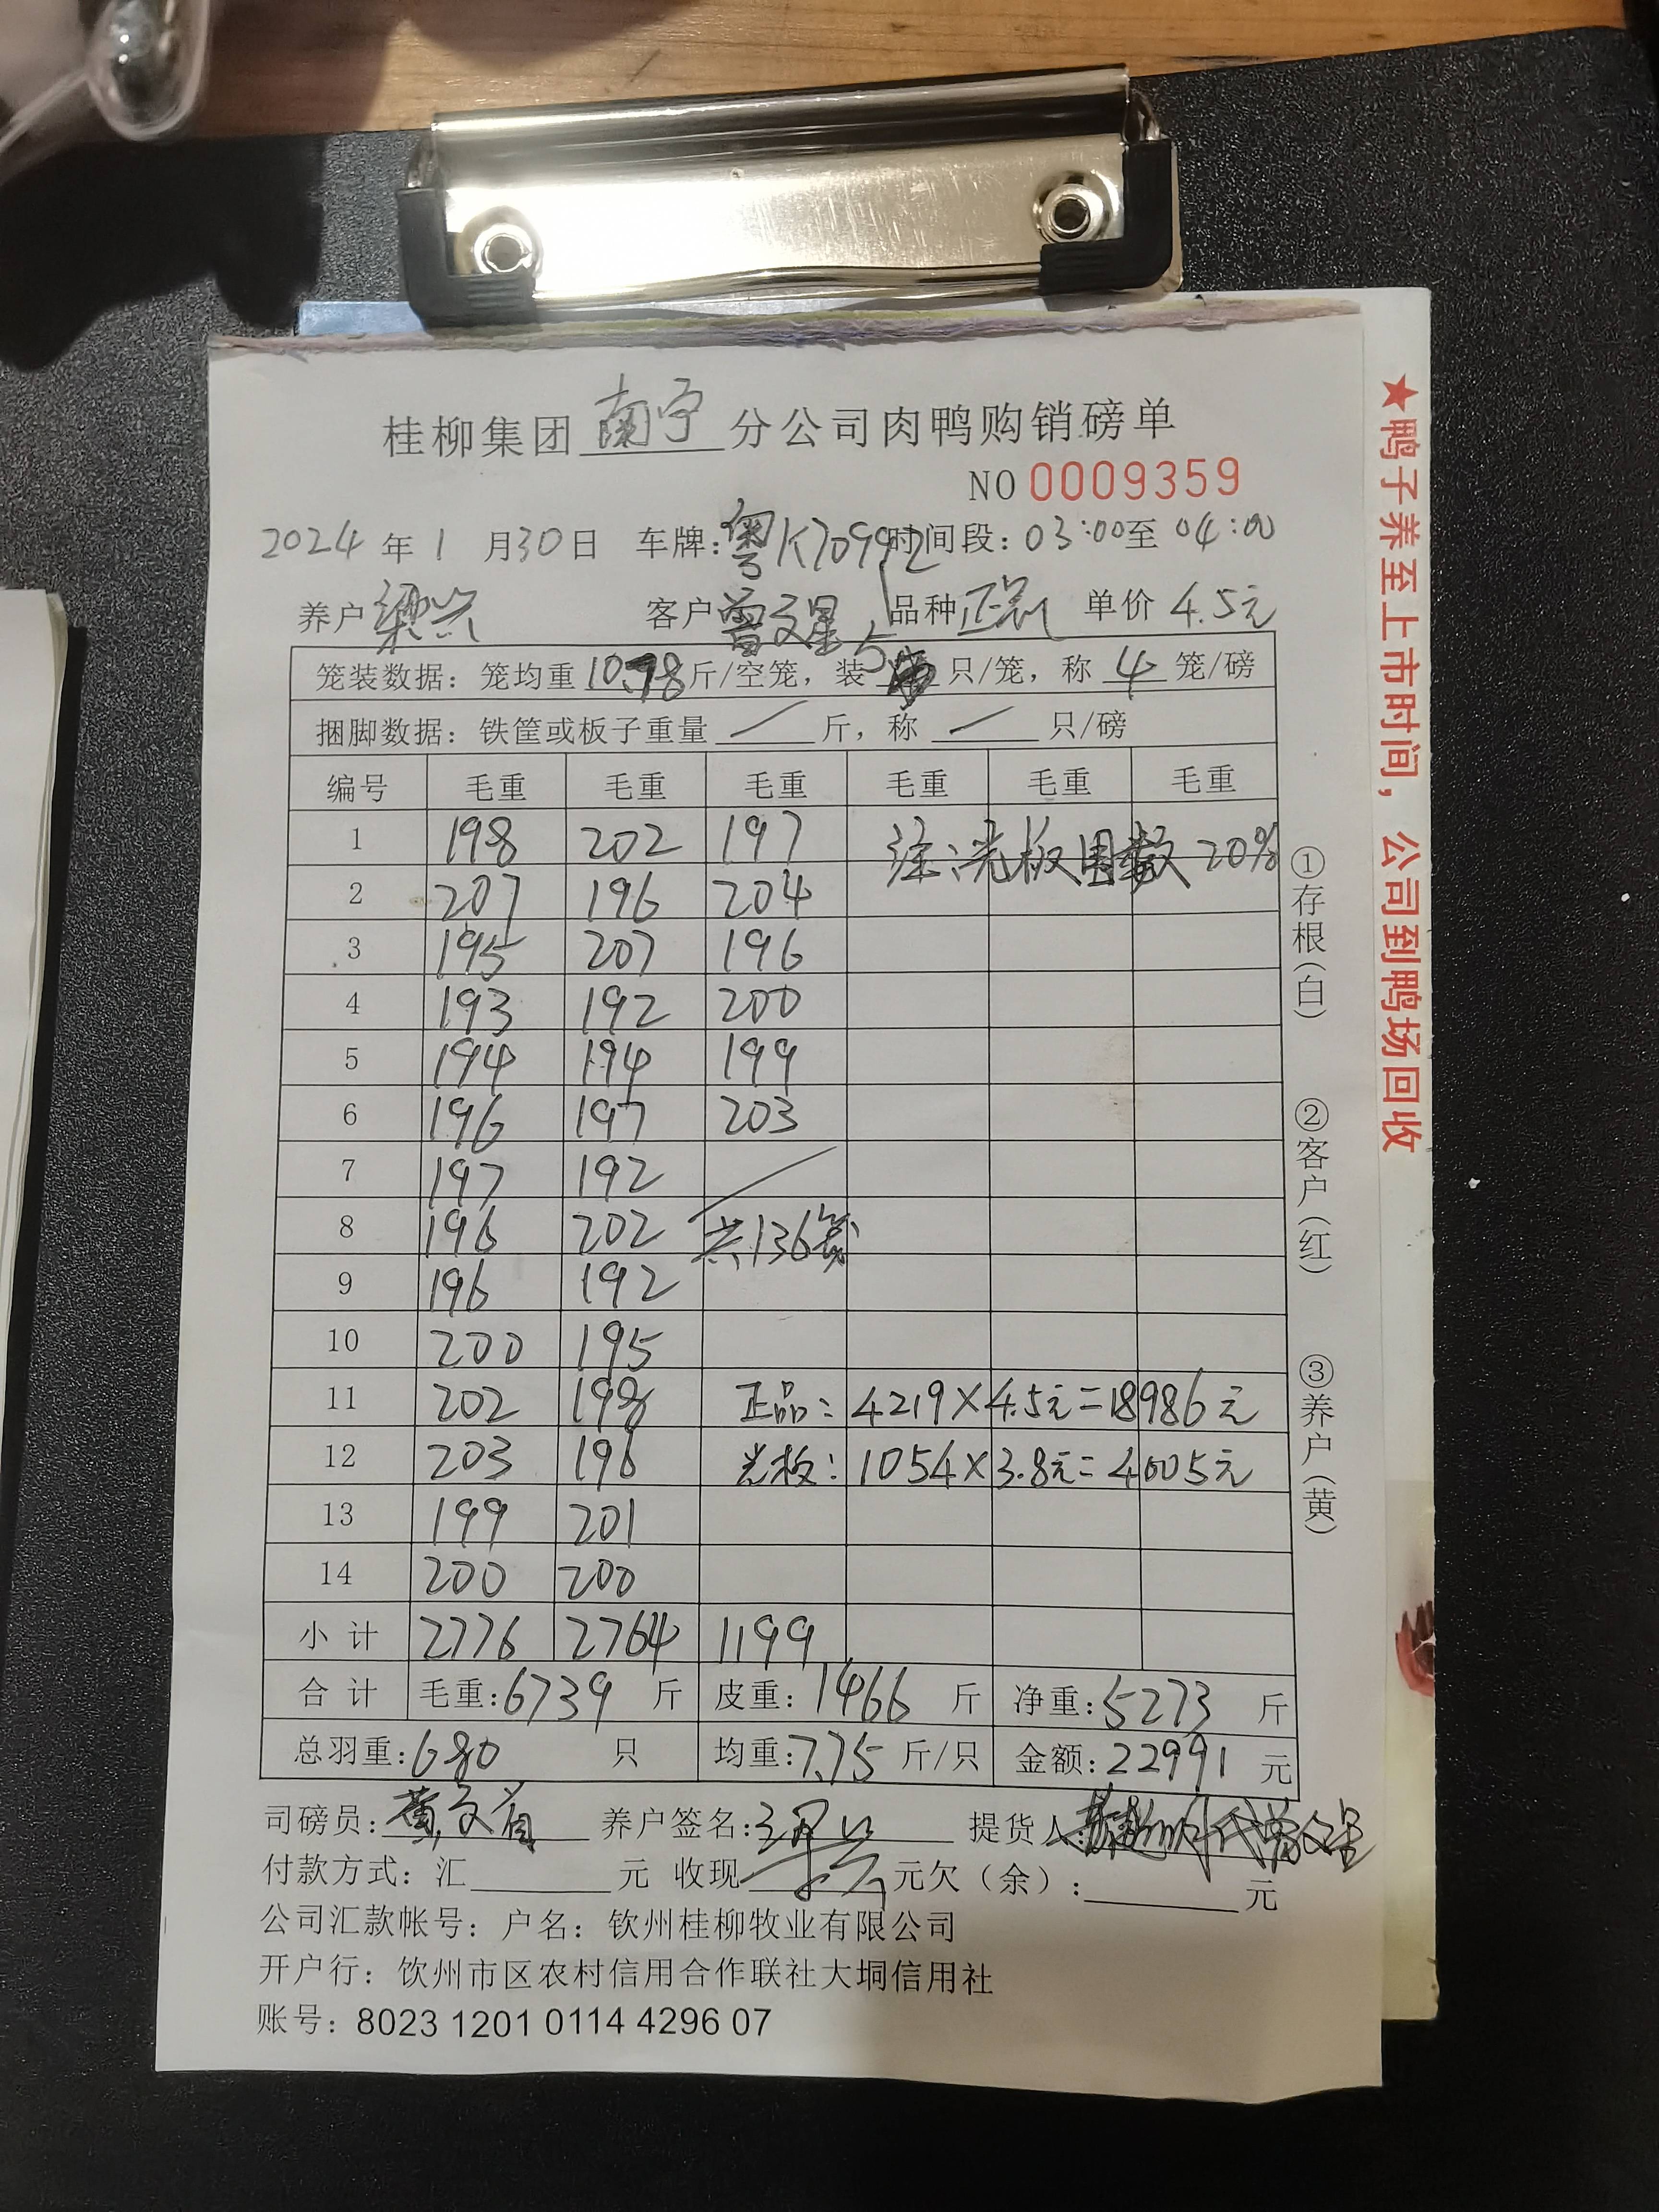 桂柳集团南宁分公司肉鸭购销磅单
NO 0009359
2024年1月30日 车牌:粤K70992 时间段:03:00至04:00
养户梁兴 客户曾文星 品种 单价4.5元
笼装数据:笼均重10.78斤/空笼,装5只/笼,称4笼/磅
捆脚数据:铁筐或板子重量/斤,称/只/磅
编号 毛重 毛重 毛重 毛重 毛重 毛重
1 198 202 197 注:光板 20%
2 207 196 204
3 195 207 196
4 193 192 200
5 194 194 199
6 196 197 203
7 197 192
8 196 202 共136笼
9 196 192
10 200 195
11 202 198 正品:4219×4.5元=18986元
12 203 196 光板:1054×3.8元=4005元
13 199 201
14 200 200
小计 2776 2764 1199
合计 毛重:6739斤 皮重:1466斤 净重:5273斤
总羽重:680只 均重:7.75斤/只 金额:22991元
司磅员: 养户签名:梁兴 提货人:
付款方式:汇 元 收现 元欠(余): 元
公司汇款帐号:户名:钦州桂柳牧业有限公司
开户行:饮州市区农村信用合作联社大垌信用社
账号:8023 1201 0114 4296 07
①存根(白) ②客户(红) ③养户(黄)
★鸭子养至上市时间,公司到鸭场回收